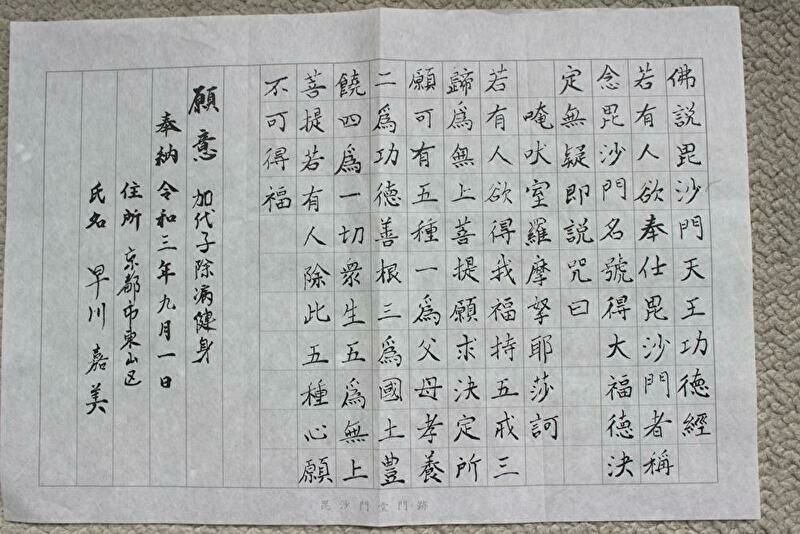 佛説毘沙門天王功徳經
若有人欲奉仕毘沙門者稱
念毘沙門名號得大福徳決
定無疑即説咒曰
唵吠室羅摩拏耶莎訶
若有人欲得我福持五戒三
歸爲無上菩提願求決定所
願可有五種一爲父母孝養
二爲功徳善根三爲國土豊
饒四爲一切衆生五爲無上
菩提若有人除此五種心願
不可得福
願意 加代子除病健身
奉納 令和三年九月一日
住所 京都市東山区
氏名 早川 嘉美
毘沙門堂門跡